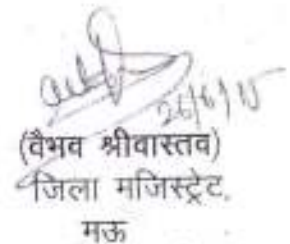 26/6/15
(वैभव श्रीवास्तव)
जिला मजिस्ट्रेट,
मऊ